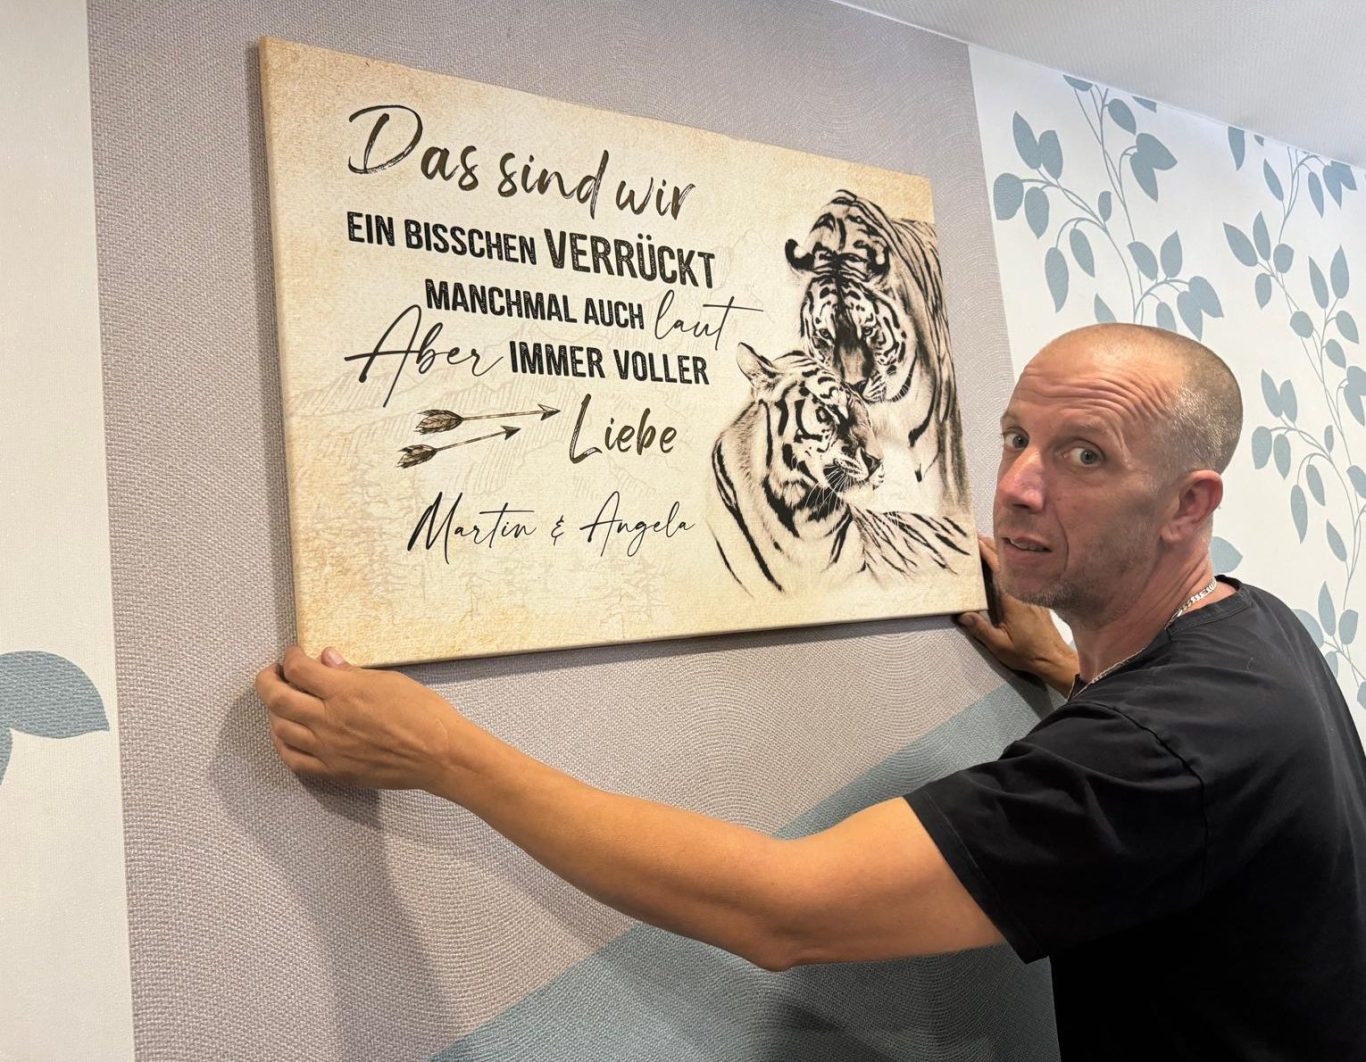 Das sind wir
EIN BISSCHEN VERRÜCKT
MANCHMAL AUCH laut
Aber IMMER VOLLER
Liebe
Martin & Angela